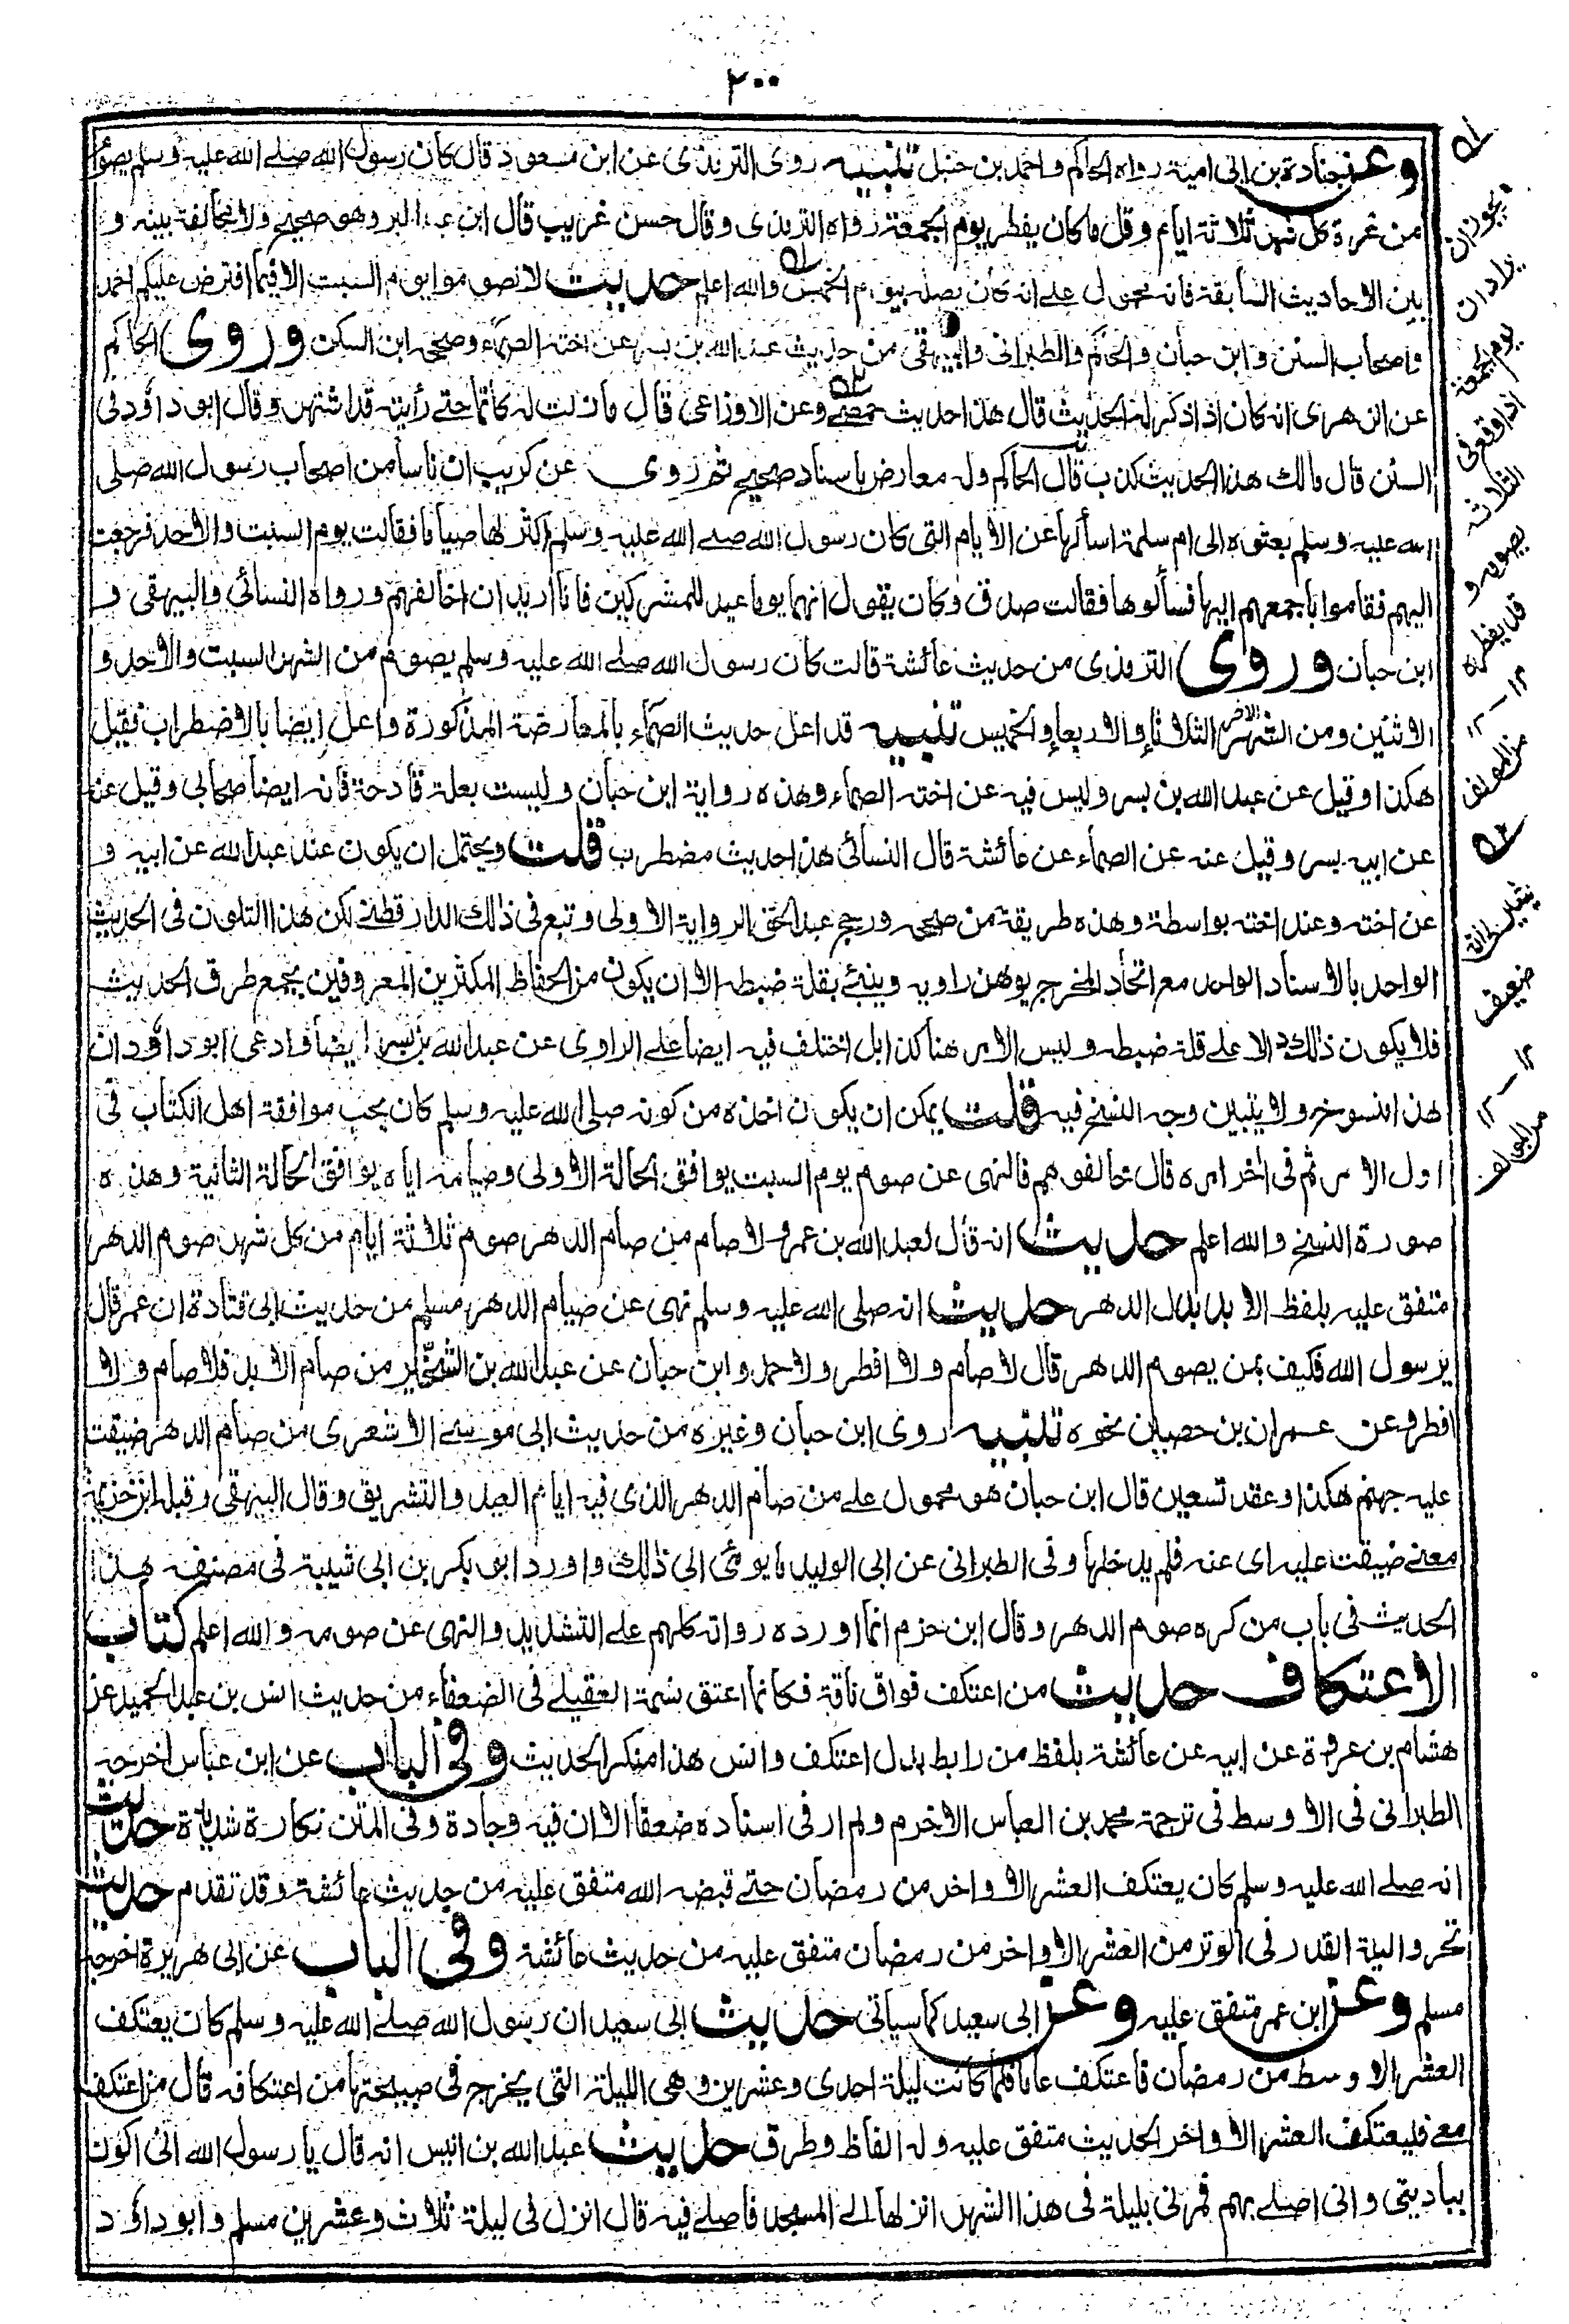 ٢٠٠
وعن جنادة بن ابى امية رواه الحاكم واحمد بن حنبل تنبيه روى الترمذى عن ابن مسعود قال كان رسول الله صلے الله عليه وسلم يصوم
من غرة كل شهر ثلاثة ايام وقل ما كان يفطر يوم الجمعة رواه الترمذى وقال حسن غريب قال ابن عبد البر وهو صحيح ولا مخالفة بينه و
بين الاحاديث السابقة فانه محمول على انه كان يصله بيوم الخميس والله اعلم حديث لا تصوموا يوم السبت الا فيما افترض عليكم احمد
واصحاب السنن وابن حبان والحاكم والطبرانى والبيهقى من حديث عبد الله بن بسر عن اخته الصماء وصححه ابن السكن وروى الحاكم
عن الزهرى انه كان اذا ذكر له الحديث قال هذا حديث حمصے وعن الاوزاعى قال ما زلت له كاتما حتے رأيته قد اشتهر وقال ابو داؤد فى
السنن قال مالك هذا الحديث كذب قال الحاكم وله معارض باسناد صحيح ثم روى عن كريب ان ناسا من اصحاب رسول الله صلى
الله عليه وسلم بعثوه الى ام سلمة اسألها عن الايام التى كان رسول الله صلے الله عليه وسلم اكثر لها صياما فقالت يوم السبت والاحد فرجعت
اليهم فقاموا باجمعهم اليها فسألوها فقالت صدق وكان يقول انهما يوما عيد للمشركين فانا اريد ان اخالفهم ورواه النسائى والبيهقى و
ابن حبان وروى الترمذى من حديث عائشة قالت كان رسول الله صلے الله عليه وسلم يصوم من الشهر السبت والاحد و
الاثنين ومن الشهر الاخر الثلاثاء والاربعاء والخميس تنبيه قد اعل حديث الصماء بالمعارضة المذكورة واعل ايضا بالاضطراب فقيل
هكذا وقيل عن عبد الله بن بسر وليس فيه عن اخته الصماء وهذه رواية ابن حبان وليست بعلة قادحة فانه ايضا صحابى وقيل عنه
عن ابيه بسر وقيل عنه عن الصماء عن عائشة قال النسائى هذا حديث مضطرب قلت ويحتمل ان يكون عند عبد الله عن ابيه و
عن اخته وعند اخته بواسطة وهذه طريقة من صححه ورجح عبد الحق الرواية الاولى وتبع فى ذلك الدارقطنے لكن هذا التلون فى الحديث
الواحد بالاسناد الواحد مع اتحاد المخرج يوهن راويه وينبئ بقلة ضبطه الا ان يكون من الحفاظ المكثرين المعروفين بجمع طرق الحديث
فلا يكون ذلك دالا على قلة ضبطه وليس الامر هنا كذا بل اختلف فيه ايضا على الراوى عن عبد الله بن بسر ايضا وادعى ابو داؤد ان
هذا منسوخ ولا يتبين وجه النسخ فيه قلت يمكن ان يكون اخذه من كونه صلى الله عليه وسلم كان يحب موافقة اهل الكتاب فى
اول الامر ثم فى اخر امره قال خالفوهم فالنهى عن صوم يوم السبت يوافق الحالة الاولى وصيامه اياه يوافق الحالة الثانية وهذه
صورة النسخ والله اعلم حديث انه قال لعبد الله بن عمرو لا صام من صام الدهر صوم ثلاثة ايام من كل شهر صوم الدهر
متفق عليه بلفظ الابد بدل الدهر حديث انه صلى الله عليه وسلم نهى عن صيام الدهر مسلم من حديث ابى قتادة ان عمر قال
يرسول الله فكيف بمن يصوم الدهر قال لا صام ولا افطر ولاحمد وابن حبان عن عبد الله بن الشخير من صام الابد فلا صام ولا
افطر وعن عمران بن حصين نحوه تنبيه روى ابن حبان وغيره من حديث ابى موسے الاشعرى من صام الدهر ضيقت
عليه جهنم هكذا وعقد تسعين قال ابن حبان هو محمول على من صام الدهر الذى فيه ايام العيد والتشريق وقال البيهقى وقبله ابن خزيمة
معنے ضيقت عليه اى عنه فلم يدخلها وفى الطبرانى عن ابى الوليد ما يومئ الى ذلك واورد ابو بكر بن ابى شيبة فى مصنفه هذا
الحديث فى باب من كره صوم الدهر وقال ابن حزم انما اورده رواته كلهم على التشديد والنهى عن صومه والله اعلم كتاب
الاعتكاف حديث من اعتكف فواق ناقة فكانما اعتق نسمة العقيلے فى الضعفاء من حديث انس بن عبد الحميد عن
هشام بن عروة عن ابيه عن عائشة بلفظ من رابط بدل اعتكف وانس هذا منكر الحديث وفى الباب عن ابن عباس اخرجه
الطبرانى فى الاوسط فى ترجمة محمد بن العباس الاخرم ولم ار فى اسناده ضعفا الا ان فيه وجادة وفى المتن نكارة شديدة حديث
انه صلے الله عليه وسلم كان يعتكف العشر الاواخر من رمضان حتے قبضه الله متفق عليه من حديث عائشة وقد تقدم حديث
تحروا ليلة القدر فى الوتر من العشر الاواخر من رمضان متفق عليه من حديث عائشة وفى الباب عن ابى هريرة اخرجه
مسلم وعن ابن عمر متفق عليه وعن ابى سعيد كما سياتى حديث ابى سعيد ان رسول الله صلے الله عليه وسلم كان يعتكف
العشر الاوسط من رمضان فاعتكف عاما فلما كانت ليلة احدى وعشرين وهى الليلة التى يخرج فى صبيحتها من اعتكافه قال من اعتكف
معے فليعتكف العشر الاواخر الحديث متفق عليه وله الفاظ وطرق حديث عبد الله بن انيس انه قال يا رسول الله انى اكون
ببادیتى وانى اصلے بهم فمرنى بليلة فى هذا الشهر انزلها الے المسجد فاصلے فيه قال انزل فى ليلة ثلاث وعشرين مسلم وابو داؤد
ويجوز ان
يراد ان
يوم الجمعة
اذا وقع فى
الثلاثة
يصومه و
قد يفطره
١٢ - ١٢
من المؤلف
ضعيف
١٢ - ١٢
من المؤلف